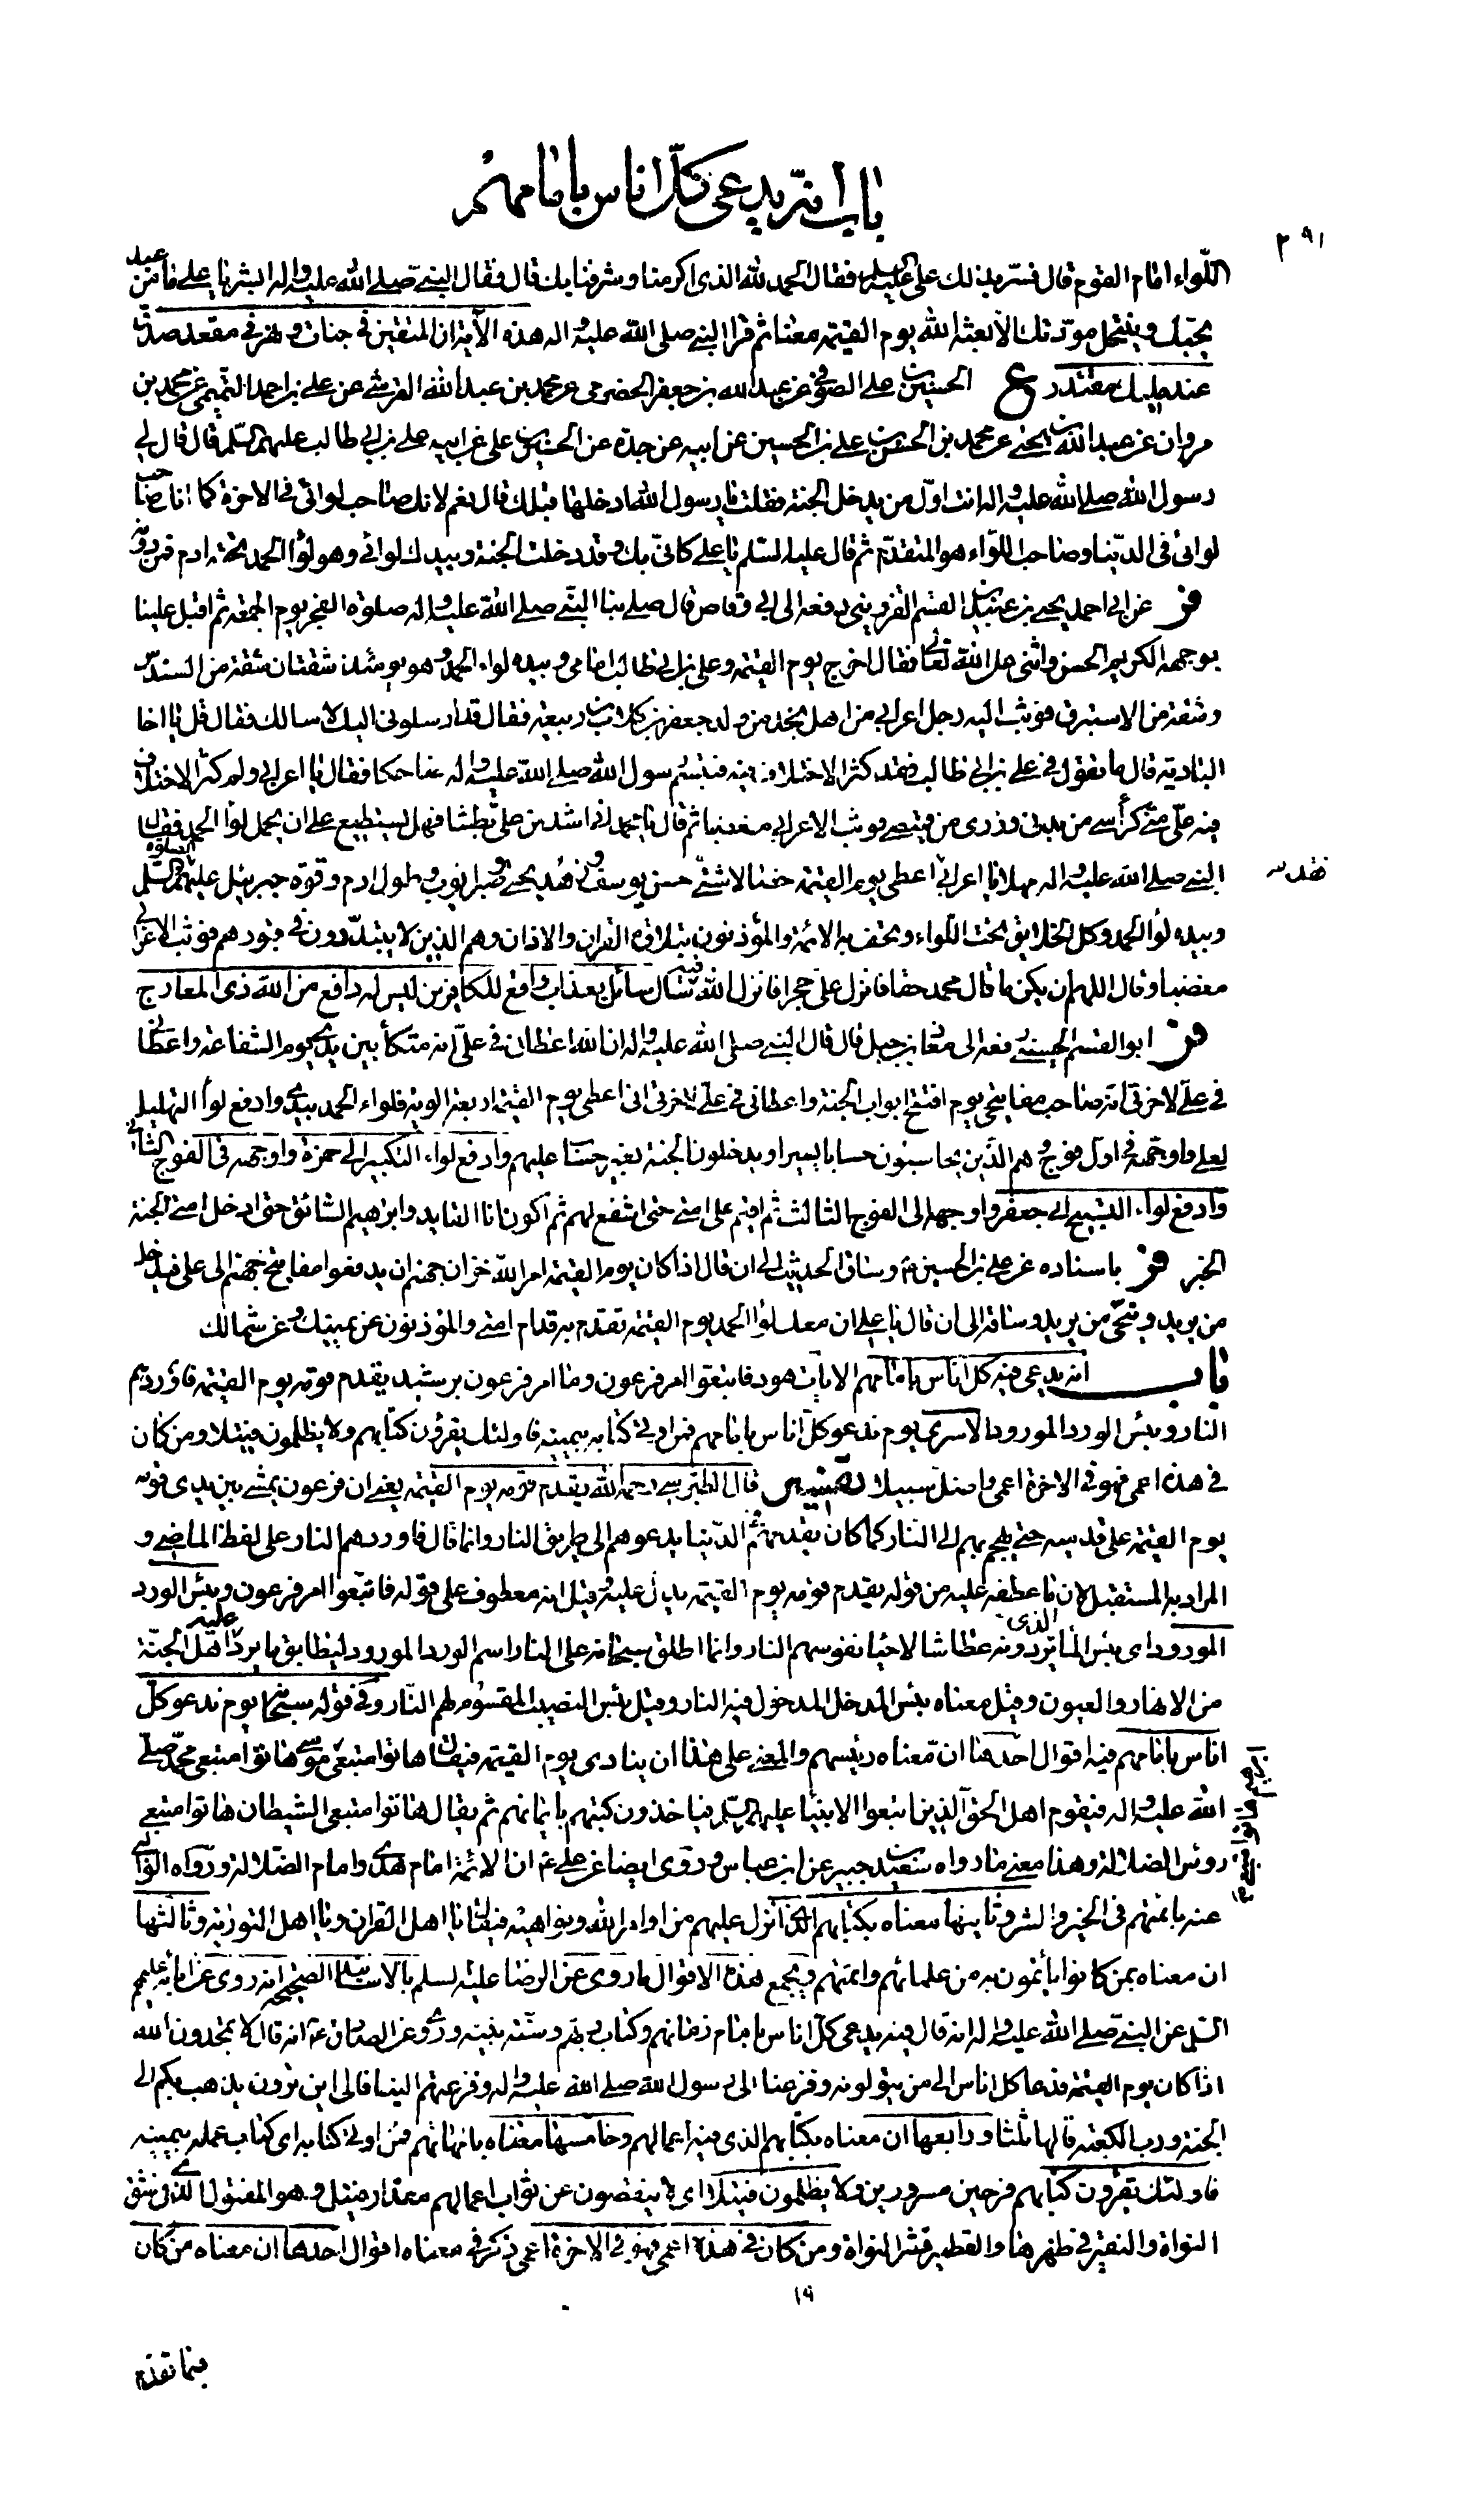 باب انه يدعى كل اناس بامامهم
٢٩١
اللواء امام القوم قال فسر بذلك على عليه السلم فقال الحمد لله الذى اكرمنا وشرفنا بك قال فقال النبي صلى الله عليه واله ابشر يا على ما من عبد
يحبك وينتحل مودتك الا بعثه الله يوم القيمة معنا ثم قرا النبي صلى الله عليه واله هذه الآية ان المتقين في جنات ونهر في مقعد صدق
عند مليك مقتدر ع الحسين بن على الصوفى عن عبد الله بن جعفر الحضرمى عن محمد بن عبد الله القرشى عن على بن احمد التميمى عن محمد بن
مروان عن عبد الله بن يحيى عن محمد بن الحسين بن على بن الحسين عن ابيه عن جده عن الحسين بن على عن ابيه على بن ابي طالب عليهم السلم قال قال لي
رسول الله صلى الله عليه واله انت اول من يدخل الجنة فقلت يا رسول الله ادخلها قبلك قال نعم لانك صاحب لوائى في الاخرة كما انك صاحب
لوائى فى الدنيا وصاحب اللواء هو المتقدم ثم قال عليه السلم يا على كانى بك وقد دخلت الجنة وبيدك لوائى وهو لواء الحمد تحته ادم فمن دونه
فر عن ابي احمد يحيى بن عبيد بن القسم القزوينى رفعه الى ابي وقاص قال صلى بنا النبي صلى الله عليه واله صلوة الفجر يوم الجمعة ثم اقبل علينا
بوجهه الكريم الحسن واثنى على الله تعالى فقال اخرج يوم القيمة وعلى بن ابي طالب امامى وبيده لواء الحمد وهو يومئذ شقتان شقة من السندس
وشقة من الاستبرق فوثب اليه رجل اعرابي من اهل نجد من ولد جعفر بن كلاب بن ربيعة فقال قد ارسلونى اليك لاسالك فقال قل يا اخا
البادية قال ما تقول في على بن ابي طالب فقد كثر الاختلاف فيه فتبسم رسول الله صلى الله عليه واله ضاحكا فقال يا اعرابي ولم كثر الاختلاف
فيه على منى كرأسى من بدنى وزرى من قميصى فوثب الاعرابي مغضبا ثم قال يا محمد انى اشد من على بطشا فهل يستطيع على ان يحمل لواء الحمد فقال
النبي صلى الله عليه واله مهلا يا اعرابي اعطى يوم القيمة خصالا شتى حسن يوسف وزهد يحيى وصبر ايوب وطول ادم وقوة جبرئيل عليهم الصلوة والسلم
وبيده لواء الحمد وكل الخلايق تحت اللواء وتحف به الائمة والمؤذنون بتلاوة القران والاذان وهم الذين لا يتبددون في قبورهم فوثب الاعرابي
مغضبا وقال اللهم ان يكن ما قال محمد حقا فانزل على حجرا فانزل الله فيه سأل سائل بعذاب واقع للكافرين ليس له دافع من الله ذى المعارج
فر ابو القسم الحسينى رفعه الى معاذ بن جبل قال قال النبي صلى الله عليه واله ان الله اعطانى في على انه متكأ بين يدى يوم الشفاعة واعطانى
في على لاخرتى انه صاحب مفاتيحى يوم افتتح ابواب الجنة واعطانى في على لاخرتى انى اعطى يوم القيمة اربعة الوية فلواء الحمد بيدى وادفع لواء التهليل
لعلى واوجهه في اول فوج وهم الذين يحاسبون حسابا يسيرا ويدخلون الجنة بغير حساب عليهم وادفع لواء التكبير الى حمزة واوجهه فى الفوج الثانى
وادفع لواء التسبيح الى جعفر واوجهه الى الفوج الثالث ثم اقيم على امتى حتى اشفع لهم ثم اكون انا القايد وابرهيم السائق حتى ادخل امتى الجنة
الخبر فر باسناده عن على بن الحسين ع وساق الحديث الى ان قال اذا كان يوم القيمة امر الله خزان جهنم ان يدفعوا مفاتيح جهنم الى على فيدخل
من يريد وينحى من يريد وساقه الى ان قال يا على ان معك لواء الحمد يوم القيمة تقدم به قدام امتى والمؤذنون عن يمينك وعن شمالك
باب انه يدعى فيه كل اناس بامامهم الايات هود فاتبعوا امر فرعون وما امر فرعون برشيد يقدم قومه يوم القيمة فاوردهم
النار وبئس الورد المورود الاسرى يوم ندعو كل اناس بامامهم فمن اوتى كتابه بيمينه فاولئك يقرؤن كتابهم ولا يظلمون فتيلا ومن كان
في هذه اعمى فهو في الاخرة اعمى واضل سبيلا تفسير قال الطبرسى رحمه الله يقدم قومه يوم القيمة يعنى ان فرعون يمشى بين يدى قومه
يوم القيمة على قدميه حتى يهجم بهم الى النار كما كان يقدمهم في الدنيا يدعوهم الى طريق النار وانما قال فاوردهم النار على لفظ الماضى و
المراد به المستقبل لان ما عطفه عليه من قوله يقدم قومه يوم القيمة يدل عليه وقيل انه معطوف على قوله فاتبعوا امر فرعون وبئس الورد
المورود اى بئس الماء الذى يردونه عطاشا لاحياء نفوسهم النار وانما اطلق سبحانه على النار اسم الورد المورود ليطابق ما يرد عليه اهل الجنة
من الانهار والعيون وقيل معناه بئس المدخل المدخول فيه النار وقيل بئس النصيب المقسوم لهم النار وفي قوله سبحانه يوم ندعو كل
اناس بامامهم فيه اقوال احدها ان معناه رئيسهم والمعنى على هذا ان ينادى يوم القيمة فيقال هاتوا متبعى موسى هاتوا متبعى محمد صلى
الله عليه واله فيقوم اهل الحق الذين اتبعوا الانبياء عليهم السلم فياخذون كتبهم بايمانهم ثم يقال هاتوا متبعى الشيطان هاتوا متبعى
رؤس الضلالة وهذا معنى ما رواه سعيد بن جبير عن ابن عباس وروى ايضا عن على ع ان الائمة امام هدى وامام الضلالة ورواه الوالبى
عنه بائمتهم فى الخير والشر وثانيها معناه بكتابهم الذى انزل عليهم من اوامر الله ونواهيه فيقال يا اهل القران ويا اهل التورية وثالثها
ان معناه بمن كانوا يأتمون به من علمائهم وائمتهم ويجمع هذه الاقوال ما روى عن الرضا عليه السلم بالاسانيد الصحيحة انه روى عن ابائه عليهم
السلم عن النبي صلى الله عليه واله انه قال فيه يدعى كل اناس بامام زمانهم وكتاب ربهم وسنة نبيهم وروى عن الصادق ع انه قال الا تمجدون الله
اذا كان يوم القيمة فدعا كل اناس الى من يتولونه وفزعنا الى رسول الله صلى الله عليه واله وفزعتم الينا فالى اين ترون يذهب بكم الى
الجنة ورب الكعبة قالها ثلثا ورابعها ان معناه بكتابهم الذى فيه اعمالهم وخامسها معناه بامهاتهم فمن اوتى كتابه اى كتاب عمله بيمينه
فاولئك يقرؤن كتابهم فرحين مسرورين ولا يظلمون فتيلا اى لا ينقصون عن ثواب اعمالهم مقدار فتيل وهو المفتول الذى في شق
النواة والنقير في ظهرها والقطمير قشر النواة ومن كان في هذه اعمى فهو في الاخرة اعمى ذكر في معناه اقوال احدها ان معناه من كان
١٩
فيما تقدم